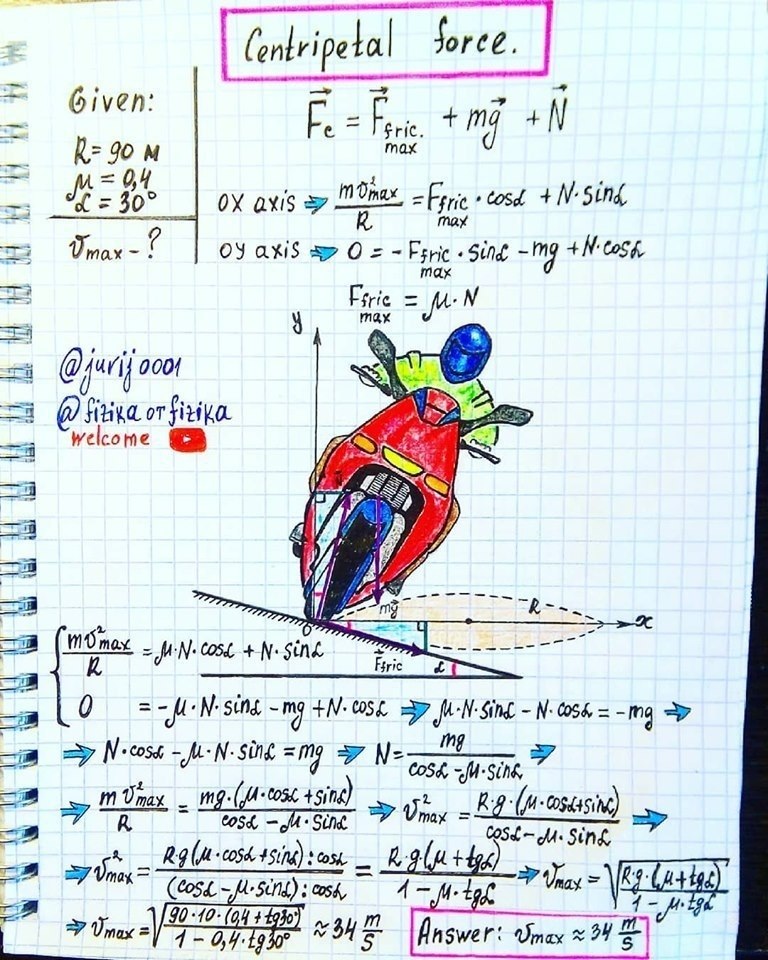 Centripetal force.
Given:
R = 90 м
μ = 0,4
α = 30°
υmax - ?
F⃗c = F⃗fric. max + mg⃗ + N⃗
ox axis ⇒ mυ²max / R = Ffric max · cosα + N · sinα
oy axis ⇒ 0 = - Ffric max · sinα - mg + N · cosα
Ffric max = μ · N
y
@jurij0001
@fizika от fizika
welcome
mg⃗
R
0
x
F⃗fric
α
{ mυ²max / R = μ · N · cosα + N · sinα
0 = - μ · N · sinα - mg + N · cosα ⇒ μ · N · sinα - N · cosα = - mg ⇒
⇒ N · cosα - μ · N · sinα = mg ⇒ N = mg / cosα - μ · sinα ⇒
⇒ mυ²max / R = mg · (μ · cosα + sinα) / cosα - μ · sinα ⇒ υ²max = R · g · (μ · cosα + sinα) / cosα - μ · sinα ⇒
⇒ υ²max = R · g (μ · cosα + sinα) : cosα / (cosα - μ · sinα) : cosα = R · g (μ + tgα) / 1 - μ · tgα ⇒ υmax = √ R · g · (μ + tgα) / 1 - μ · tgα
⇒ υmax = √ 90 · 10 · (0,4 + tg30°) / 1 - 0,4 · tg30° ≈ 34 m/s
Answer: υmax ≈ 34 m/s